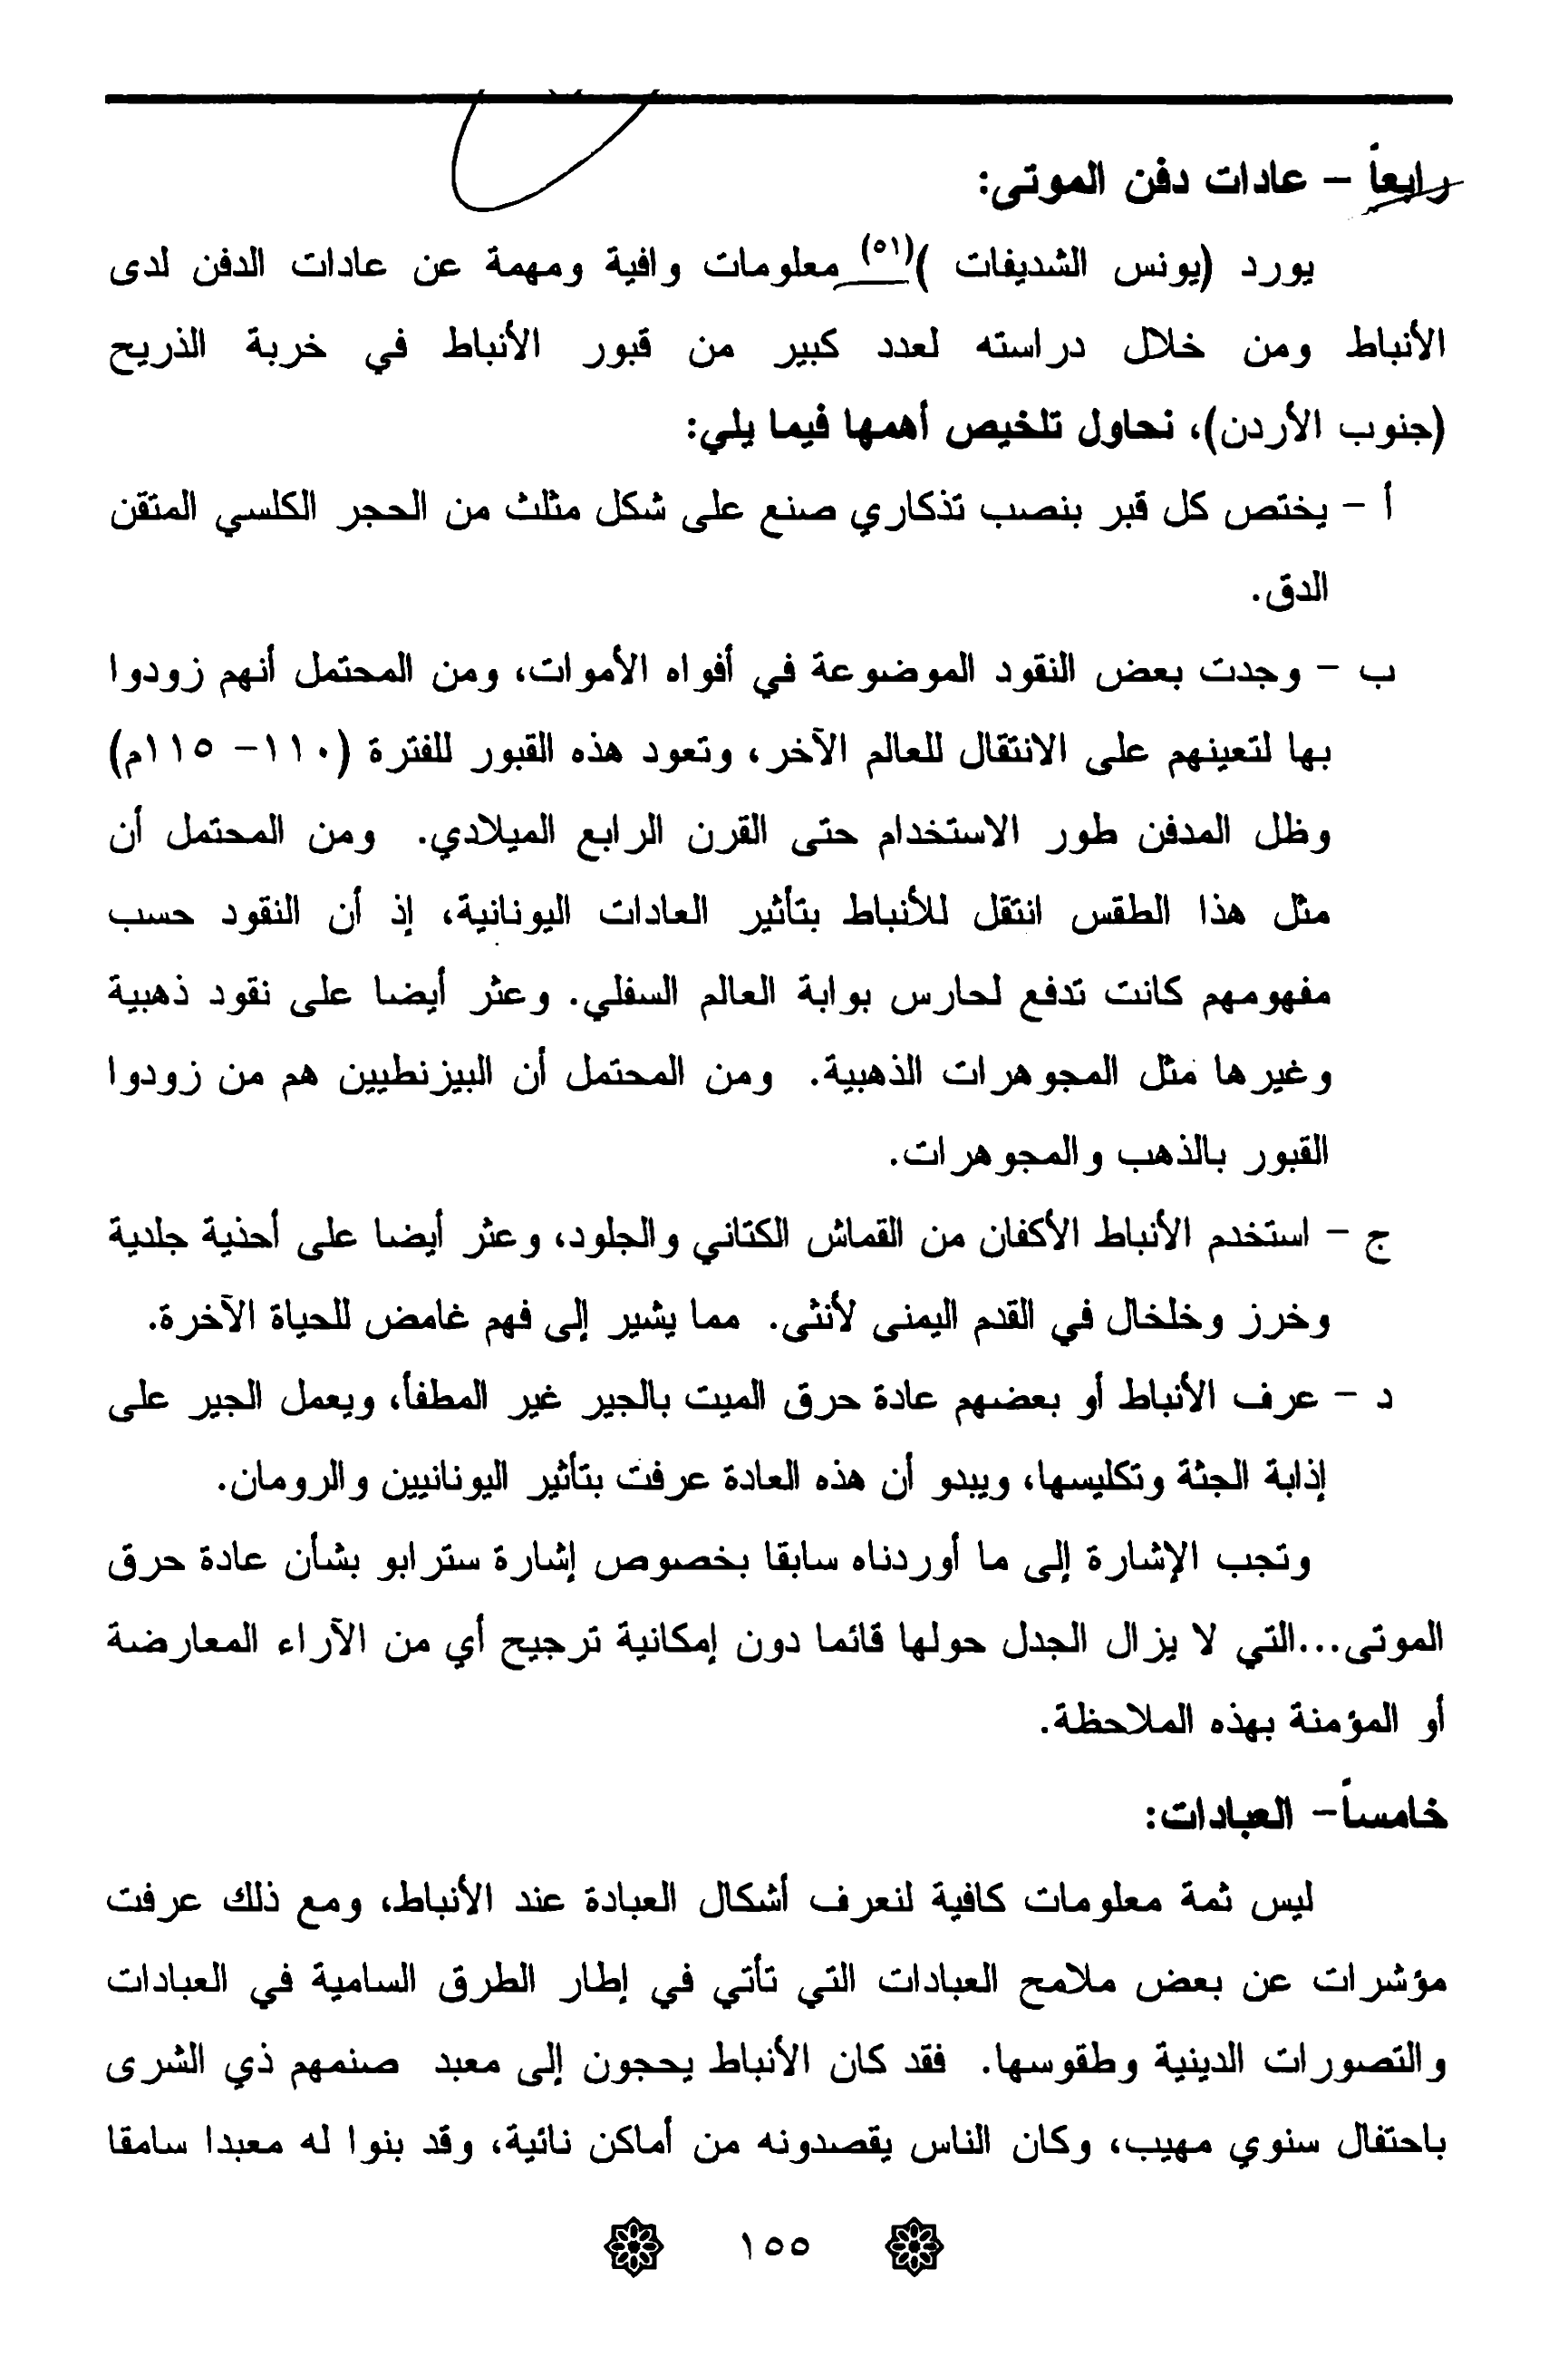 رابعاً - عادات دفن الموتى:
يورد (يونس الشديفات )(٥١) معلومات وافية ومهمة عن عادات الدفن لدى
الأنباط ومن خلال دراسته لعدد كبير من قبور الأنباط في خربة الذريح
(جنوب الأردن)، نحاول تلخيص أهمها فيما يلي:
أ - يختص كل قبر بنصب تذكاري صنع على شكل مثلث من الحجر الكلسي المتقن
الدق.
ب - وجدت بعض النقود الموضوعة في أفواه الأموات، ومن المحتمل أنهم زودوا
بها لتعينهم على الانتقال للعالم الآخر، وتعود هذه القبور للفترة (١١٠- ١١٥م)
وظل المدفن طور الاستخدام حتى القرن الرابع الميلادي. ومن المحتمل أن
مثل هذا الطقس انتقل للأنباط بتأثير العادات اليونانية، إذ أن النقود حسب
مفهومهم كانت تدفع لحارس بوابة العالم السفلي. وعثر أيضا على نقود ذهبية
وغيرها مثل المجوهرات الذهبية. ومن المحتمل أن البيزنطيين هم من زودوا
القبور بالذهب والمجوهرات.
ج - استخدم الأنباط الأكفان من القماش الكتاني والجلود، وعثر أيضا على أحذية جلدية
وخرز وخلخال في القدم اليمنى لأنثى. مما يشير إلى فهم غامض للحياة الآخرة.
د - عرف الأنباط أو بعضهم عادة حرق الميت بالجير غير المطفأ، ويعمل الجير على
إذابة الجثة وتكليسها، ويبدو أن هذه العادة عرفت بتأثير اليونانيين والرومان.
وتجب الإشارة إلى ما أوردناه سابقا بخصوص إشارة سترابو بشأن عادة حرق
الموتى...التي لا يزال الجدل حولها قائما دون إمكانية ترجيح أي من الآراء المعارضة
أو المؤمنة بهذه الملاحظة.
خامساً- العبادات:
ليس ثمة معلومات كافية لنعرف أشكال العبادة عند الأنباط، ومع ذلك عرفت
مؤشرات عن بعض ملامح العبادات التي تأتي في إطار الطرق السامية في العبادات
والتصورات الدينية وطقوسها. فقد كان الأنباط يحجون إلى معبد صنمهم ذي الشرى
باحتفال سنوي مهيب، وكان الناس يقصدونه من أماكن نائية، وقد بنوا له معبدا سامقا
١٥٥